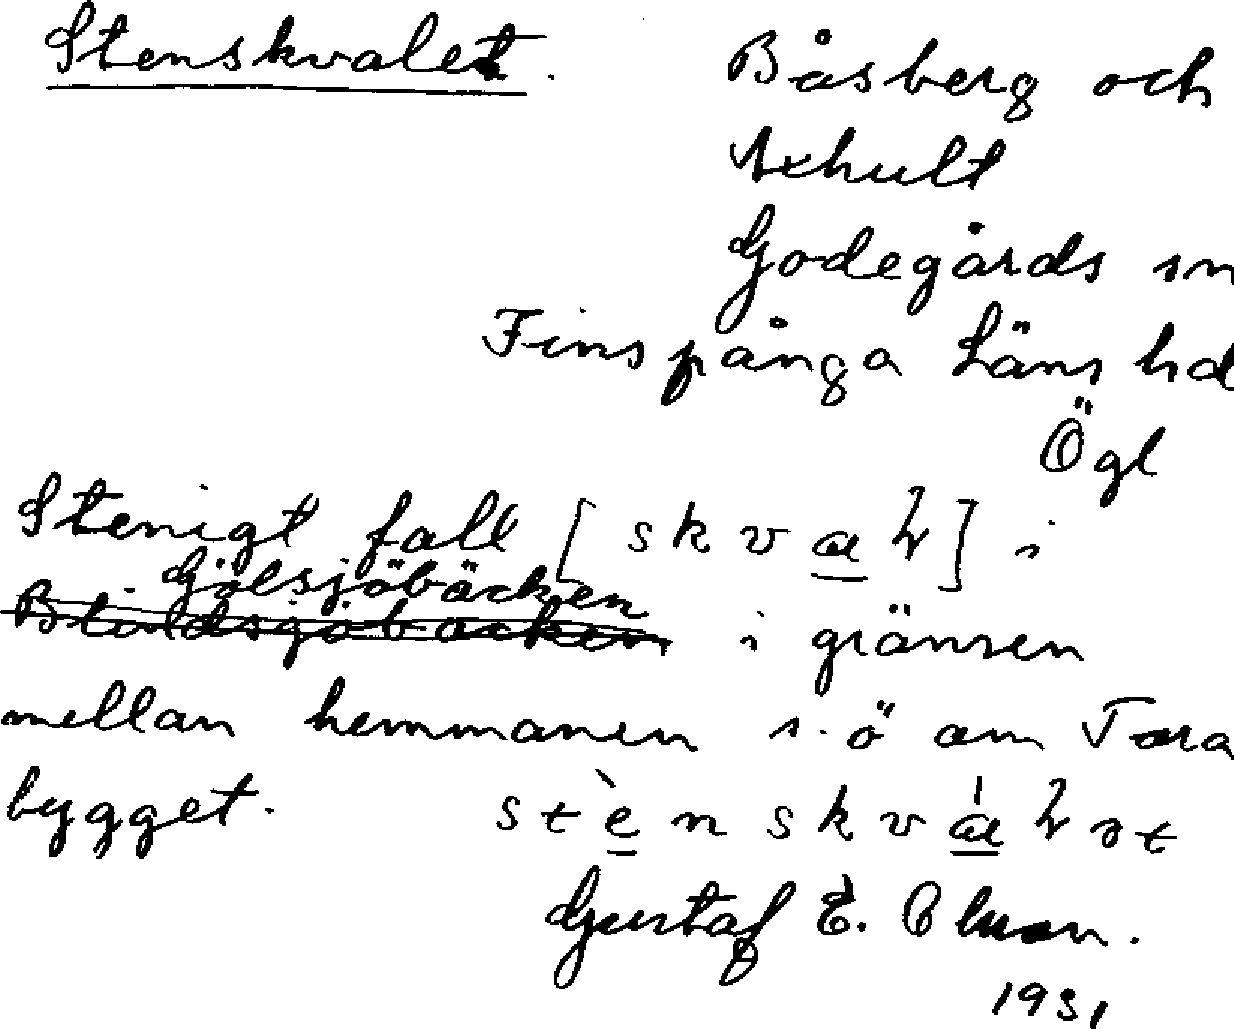 Stenskvalet.
Båsberg och
Axhult
Godegårds sn
Finspånga Läns hd
Ögl
Stenigt fall [skvaɽ] i
Gölsjöbäcken
i gränsen
mellan hemmanen s.ö om Tora
bygget. stènskváɽət
Gustaf E. Olsson.
1931